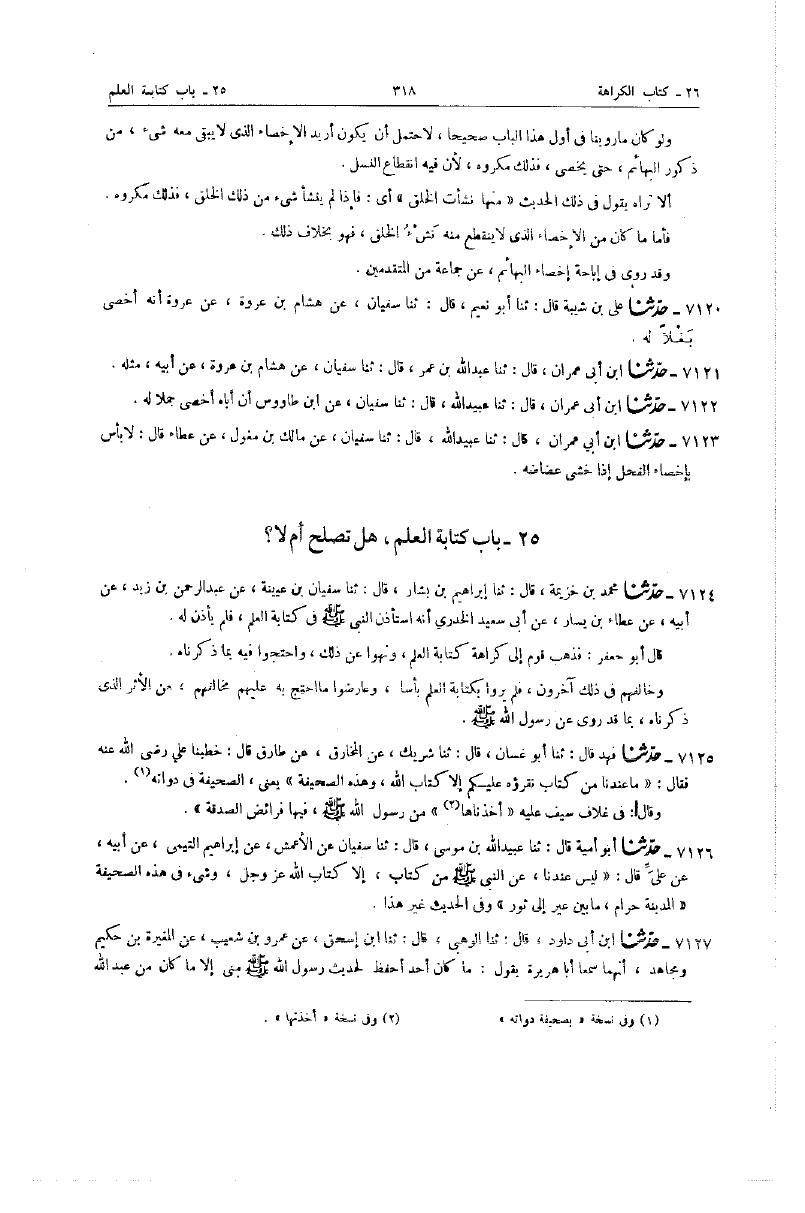 ٢٦ ـ كتاب الكراهة ٣١٨ ٢٥ ـ باب كتابة العلم
ولو كان ماروينا فى أول هذا الباب صحيحا ، لاحتمل أن يكون أريد الإخصاء الذى لايبقى معه شىء ، من
ذكور البهائم ، حتى يخصى ، فذلك مكروه ، لأن فيه انقطاع النسل .
ألا تراه يقول فى ذلك الحديث « منها نشأت الخلق » أى : فإذا لم ينشأ شىء من ذلك الخلق ، فذلك مكروه .
فأما ما كان من الإخصاء الذى لاينقطع منه نَشْءُ الخلق ، فهو بخلاف ذلك .
وقد روى فى إباحة إخصاء البهائم ، عن جماعة من المتقدمين .
٧١٢٠ ـ حدّثنا على بن شيبة قال : ثنا أبو نعيم ، قال : ثنا سفيان ، عن هشام بن عروة ، عن عروة أنه أخصى
بَغْلاً له .
٧١٢١ ـ حدّثنا ابن أبى عمران ، قال : ثنا عبدالله بن عمر ، قال : ثنا سفيان ، عن هشام بن عروة ، عن أبيه ، مثله .
٧١٢٢ ـ حدّثنا ابن أبى عمران ، قال : ثنا عبيدالله ، قال : ثنا سفيان ، عن ابن طاووس أن أباه أخصى جملا له .
٧١٢٣ ـ حدّثنا ابن أبي عمران ، قال : ثنا عبيدالله ، قال : ثنا سفيان ، عن مالك بن مغول ، عن عطاء قال : لابأس
بإخصاء الفحل إذا خشى عضاضه .
٢٥ ـ باب كتابة العلم ، هل تصلح أم لا ؟
٧١٢٤ ـ حدّثنا محمد بن خزيمة ، قال : ثنا إبراهيم بن بشار ، قال : ثنا سفيان بن عيينة ، عن عبدالرحمن بن زيد ، عن
أبيه ، عن عطاء بن يسار ، عن أبي سعيد الخدري أنه استأذن النبي ﷺ فى كتابة العلم ، فلم يأذن له .
قال أبو جعفر : فذهب قوم إلى كراهة كتابة العلم ، ونهوا عن ذلك ، واحتجوا فيه بما ذكرناه .
وخالفهم فى ذلك آخرون ، فلم يروا بكتابة العلم بأسا ، وعارضوا مااحتج به عليهم مخالفهم ، من الأثر الذى
ذكرناه ، بما قد روى عن رسول الله ﷺ .
٧١٢٥ ـ حدّثنا فهد قال : ثنا أبو غسان ، قال : ثنا شريك ، عن المخارق ، عن طارق قال : خطبنا علي رضى الله عنه
فقال : « ماعندنا من كتاب نقرؤه عليكم إلا كتاب الله ، وهذه الصحيفة » يعنى ، الصحيفة فى دواته(١) .
وقال : فى غلاف سيف عليه « أخذناها(٢) » من رسول الله ﷺ ، فيها فرائض الصدقة » .
٧١٢٦ ـ حدّثنا أبو أمية قال : ثنا عبيدالله بن موسى ، قال : ثنا سفيان عن الأعمش ، عن إبراهيم التيمى ، عن أبيه ،
عن علىّ قال : « ليس عندنا ، عن النبى ﷺ من كتاب ، إلا كتاب الله عز وجل ، وشىء فى هذه الصحيفة
« المدينة حرام ، مابين عير إلى ثور » وفى الحديث غير هذا .
٧١٢٧ ـ حدّثنا ابن أبى داود ، قال : ثنا الوهبى ، قال : ثنا ابن إسحق ، عن عمرو بن شعيب ، عن المغيرة بن حكيم
ومجاهد ، أنهما سمعا أبا هريرة يقول : ما كان أحد أحفظ لحديث رسول الله ﷺ منى إلا ما كان من عبدالله
(١) وفى نسخة « بصحيفة دواته » (٢) وفى نسخة « أخذتها » .